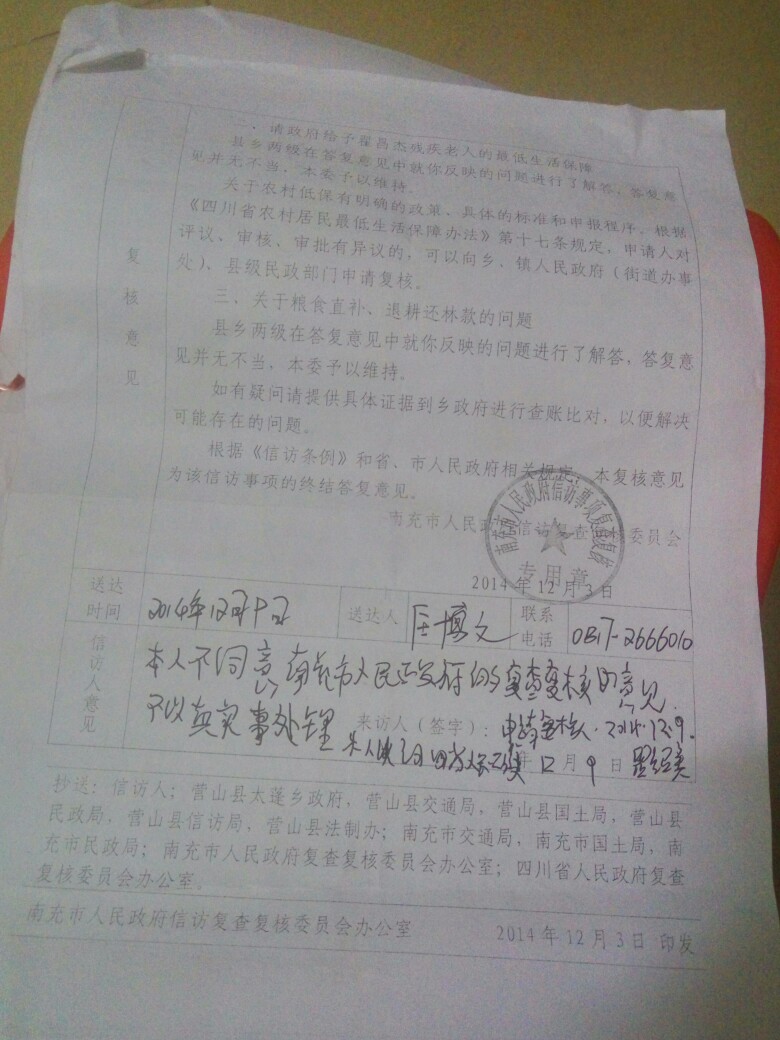 、请政府给予翟昌杰残疾老人的最低生活保障
县乡两级在答复意见中就你反映的问题进行了解答，答复意
见并无不当，本委予以维持。
关于农村低保有明确的政策、具体的标准和申报程序，根据
《四川省农村居民最低生活保障办法》第十七条规定，申请人对
评议、审核、审批有异议的，可以向乡、镇人民政府（街道办事
处）、县级民政部门申请复核。
三、关于粮食直补、退耕还林款的问题
县乡两级在答复意见中就你反映的问题进行了解答，答复意
见并无不当，本委予以维持。
如有疑问请提供具体证据到乡政府进行查账比对，以便解决
可能存在的问题。
根据《信访条例》和省、市人民政府相关规定，本复核意见
为该信访事项的终结答复意见。
复核意见
南充市人民政府信访复查复核委员会
南充市人民政府信访事项复查复核
专用章
2014年12月3日
送达时间 2014年12月9日 送达人 博文 联系电话 0817-2666010
信访人意见
本人不同意南充市人民政府的复查复核的意见.
予以真实事处理 来访人（签字）： 2014.12.9.
年12月9日
抄送：信访人；营山县太蓬乡政府，营山县交通局，营山县国土局，营山县
民政局，营山县信访局，营山县法制办；南充市交通局，南充市国土局，南
充市民政局；南充市人民政府复查复核委员会办公室；四川省人民政府复查
复核委员会办公室。
南充市人民政府信访复查复核委员会办公室 2014年12月3日 印发